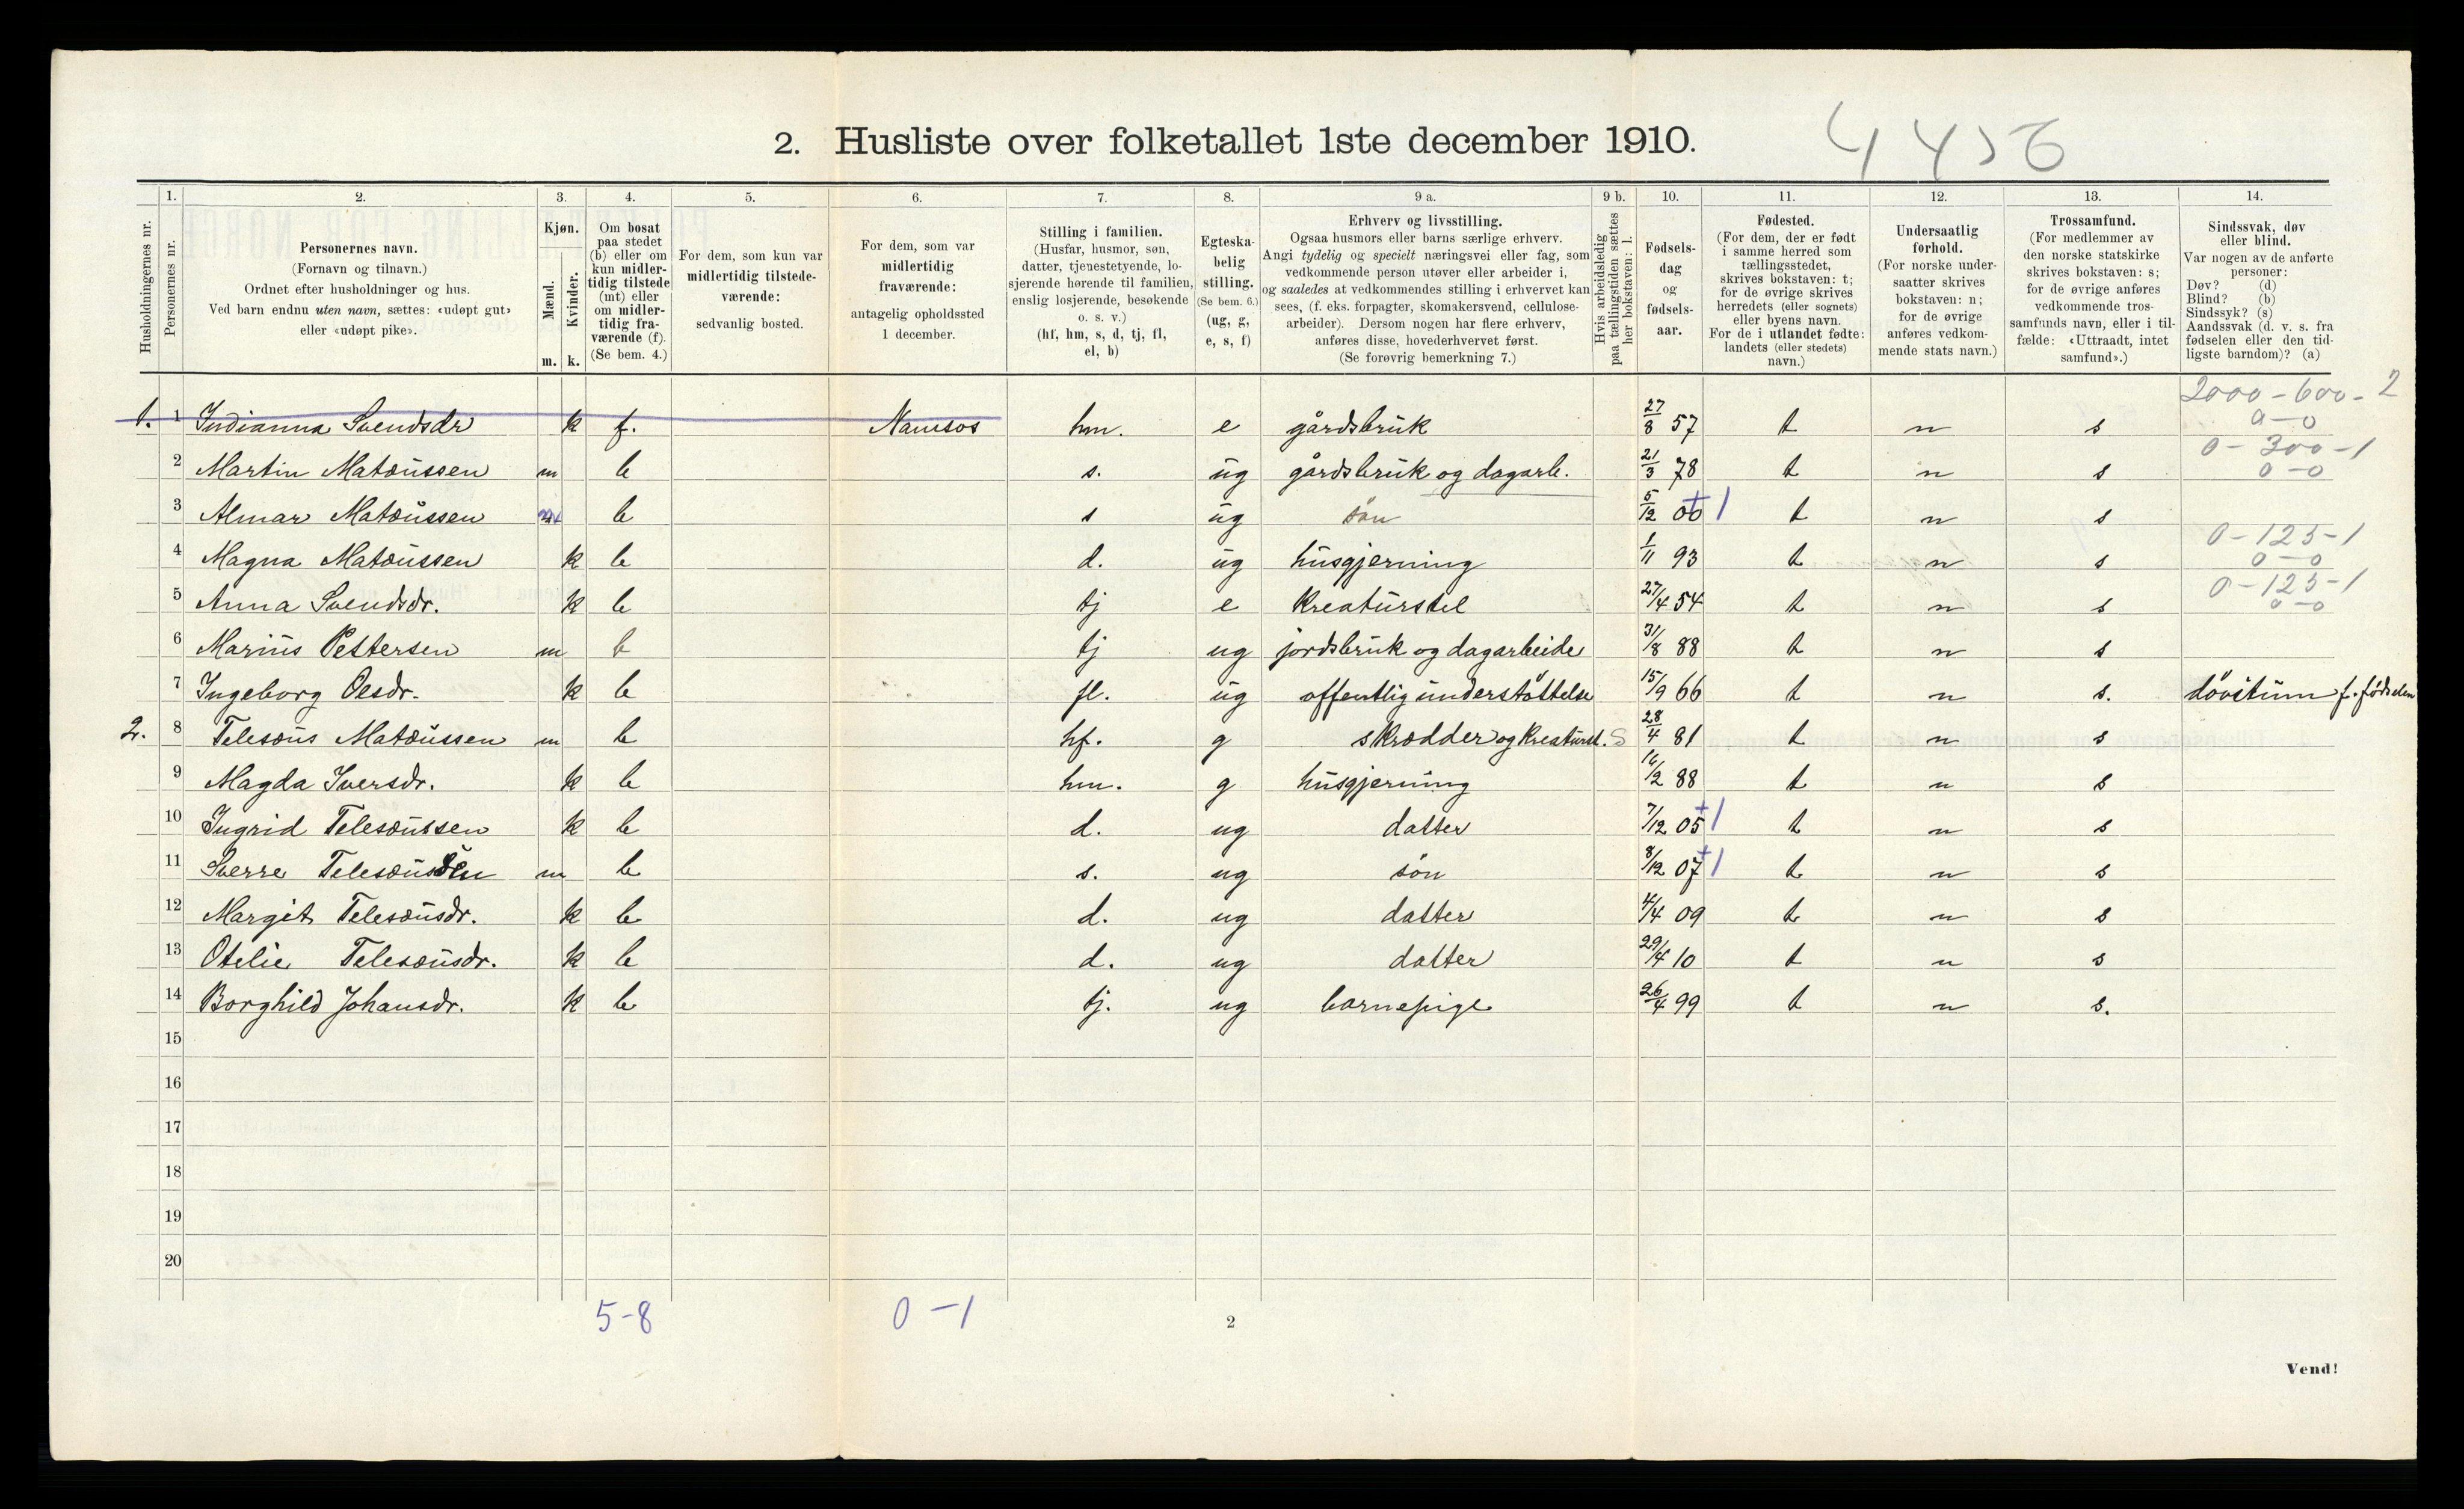 2. Husliste over folketallet 1ste december 1910.
Husholdningernes nr.
1. Personernes nr.
2. Personernes navn. (Fornavn og tilnavn.) Ordnet efter husholdninger og hus. Ved barn endnu uten navn, sættes: «udøpt gut» eller «udøpt pike».
3. Kjøn. Mænd. m. Kvinder. k.
4. Om bosat paa stedet (b) eller om kun midlertidig tilstede (mt) eller om midlertidig fraværende (f). (Se bem. 4.)
5. For dem, som kun var midlertidig tilstedeværende: sedvanlig bosted.
6. For dem, som var midlertidig fraværende: antagelig opholdssted 1 december.
7. Stilling i familien. (Husfar, husmor, søn, datter, tjenestetyende, losjerende hørende til familien, enslig losjerende, besøkende o. s. v.) (hf, hm, s, d, tj, fl, el, b)
8. Egteskabelig stilling. (Se bem. 6.) (ug, g, e, s, f)
9 a. Erhverv og livsstilling. Ogsaa husmors eller barns særlige erhverv. Angi tydelig og specielt næringsvei eller fag, som vedkommende person utøver eller arbeider i, og saaledes at vedkommendes stilling i erhvervet kan sees, (f. eks. forpagter, skomakersvend, cellulosearbeider). Dersom nogen har flere erhverv, anføres disse, hovederhvervet først. (Se forøvrig bemerkning 7.)
9 b. Hvis arbeidsledig paa tællingstiden sættes her bokstaven: l.
10. Fødselsdag og fødselsaar.
11. Fødested. (For dem, der er født i samme herred som tællingsstedet, skrives bokstaven: t; for de øvrige skrives herredets (eller sognets) eller byens navn. For de i utlandet fødte: landets (eller stedets) navn.)
12. Undersaatlig forhold. (For norske undersaatter skrives bokstaven: n; for de øvrige anføres vedkommende stats navn.)
13. Trossamfund. (For medlemmer av den norske statskirke skrives bokstaven: s; for de øvrige anføres vedkommende trossamfunds navn, eller i tilfælde: «Uttraadt, intet samfund».)
14. Sindssvak, døv eller blind. Var nogen av de anførte personer: Døv? (d) Blind? (b) Sindssyk? (s) Aandssvak (d. v. s. fra fødselen eller den tidligste barndom)? (a)
2000-600-2
1. 1 Indianna Svendsdr k f. Namsos hm. e gårdsbruk 27/8 57 t n s 0-0
0-300-1
2 Martin Matæussen m b s. ug gårdsbruk og dagarb. 21/3 78 t n s 0-0
3 Almar Matæussen m b s ug søn 5/12 00 + 1 t n s
0-125-1
4 Magna Matæussen k b d. ug husgjerning 1/11 93 t n s 0-0
0-125-1
5 Anna Svendsdr. k b tj e Kreaturstel 27/4 54 t n s 0-0
6 Marius Pettersen m b tj ug jordsbruk og dagarbeide 31/8 88 t n s
7 Ingeborg Olsdr. k b fl. ug offentlig understøttelse 15/9 66 t n s. døvstum f. fødselen
2. 8 Telesæus Matæussen m b hf. g skrædder og Kreaturst. S 28/4 81 t n s
9 Magda Iversdr. k b hm. g husgjerning 16/2 88 t n s
10 Ingrid Telesæussen k b d. ug datter 7/12 05 + 1 t n s
11 Sverre Telesæussen m b s. ug søn 8/12 07 + 1 t n s
12 Margit Telesæusdr. k b d. ug datter 4/4 09 t n s
13 Otelie Telesæusdr. k b d. ug datter 29/4 10 t n s
14 Borghild Johansdr. k b tj. ug barnepige 26/4 99 t n s.
15
16
17
18
19
20
5-8 0-1
2
Vend!